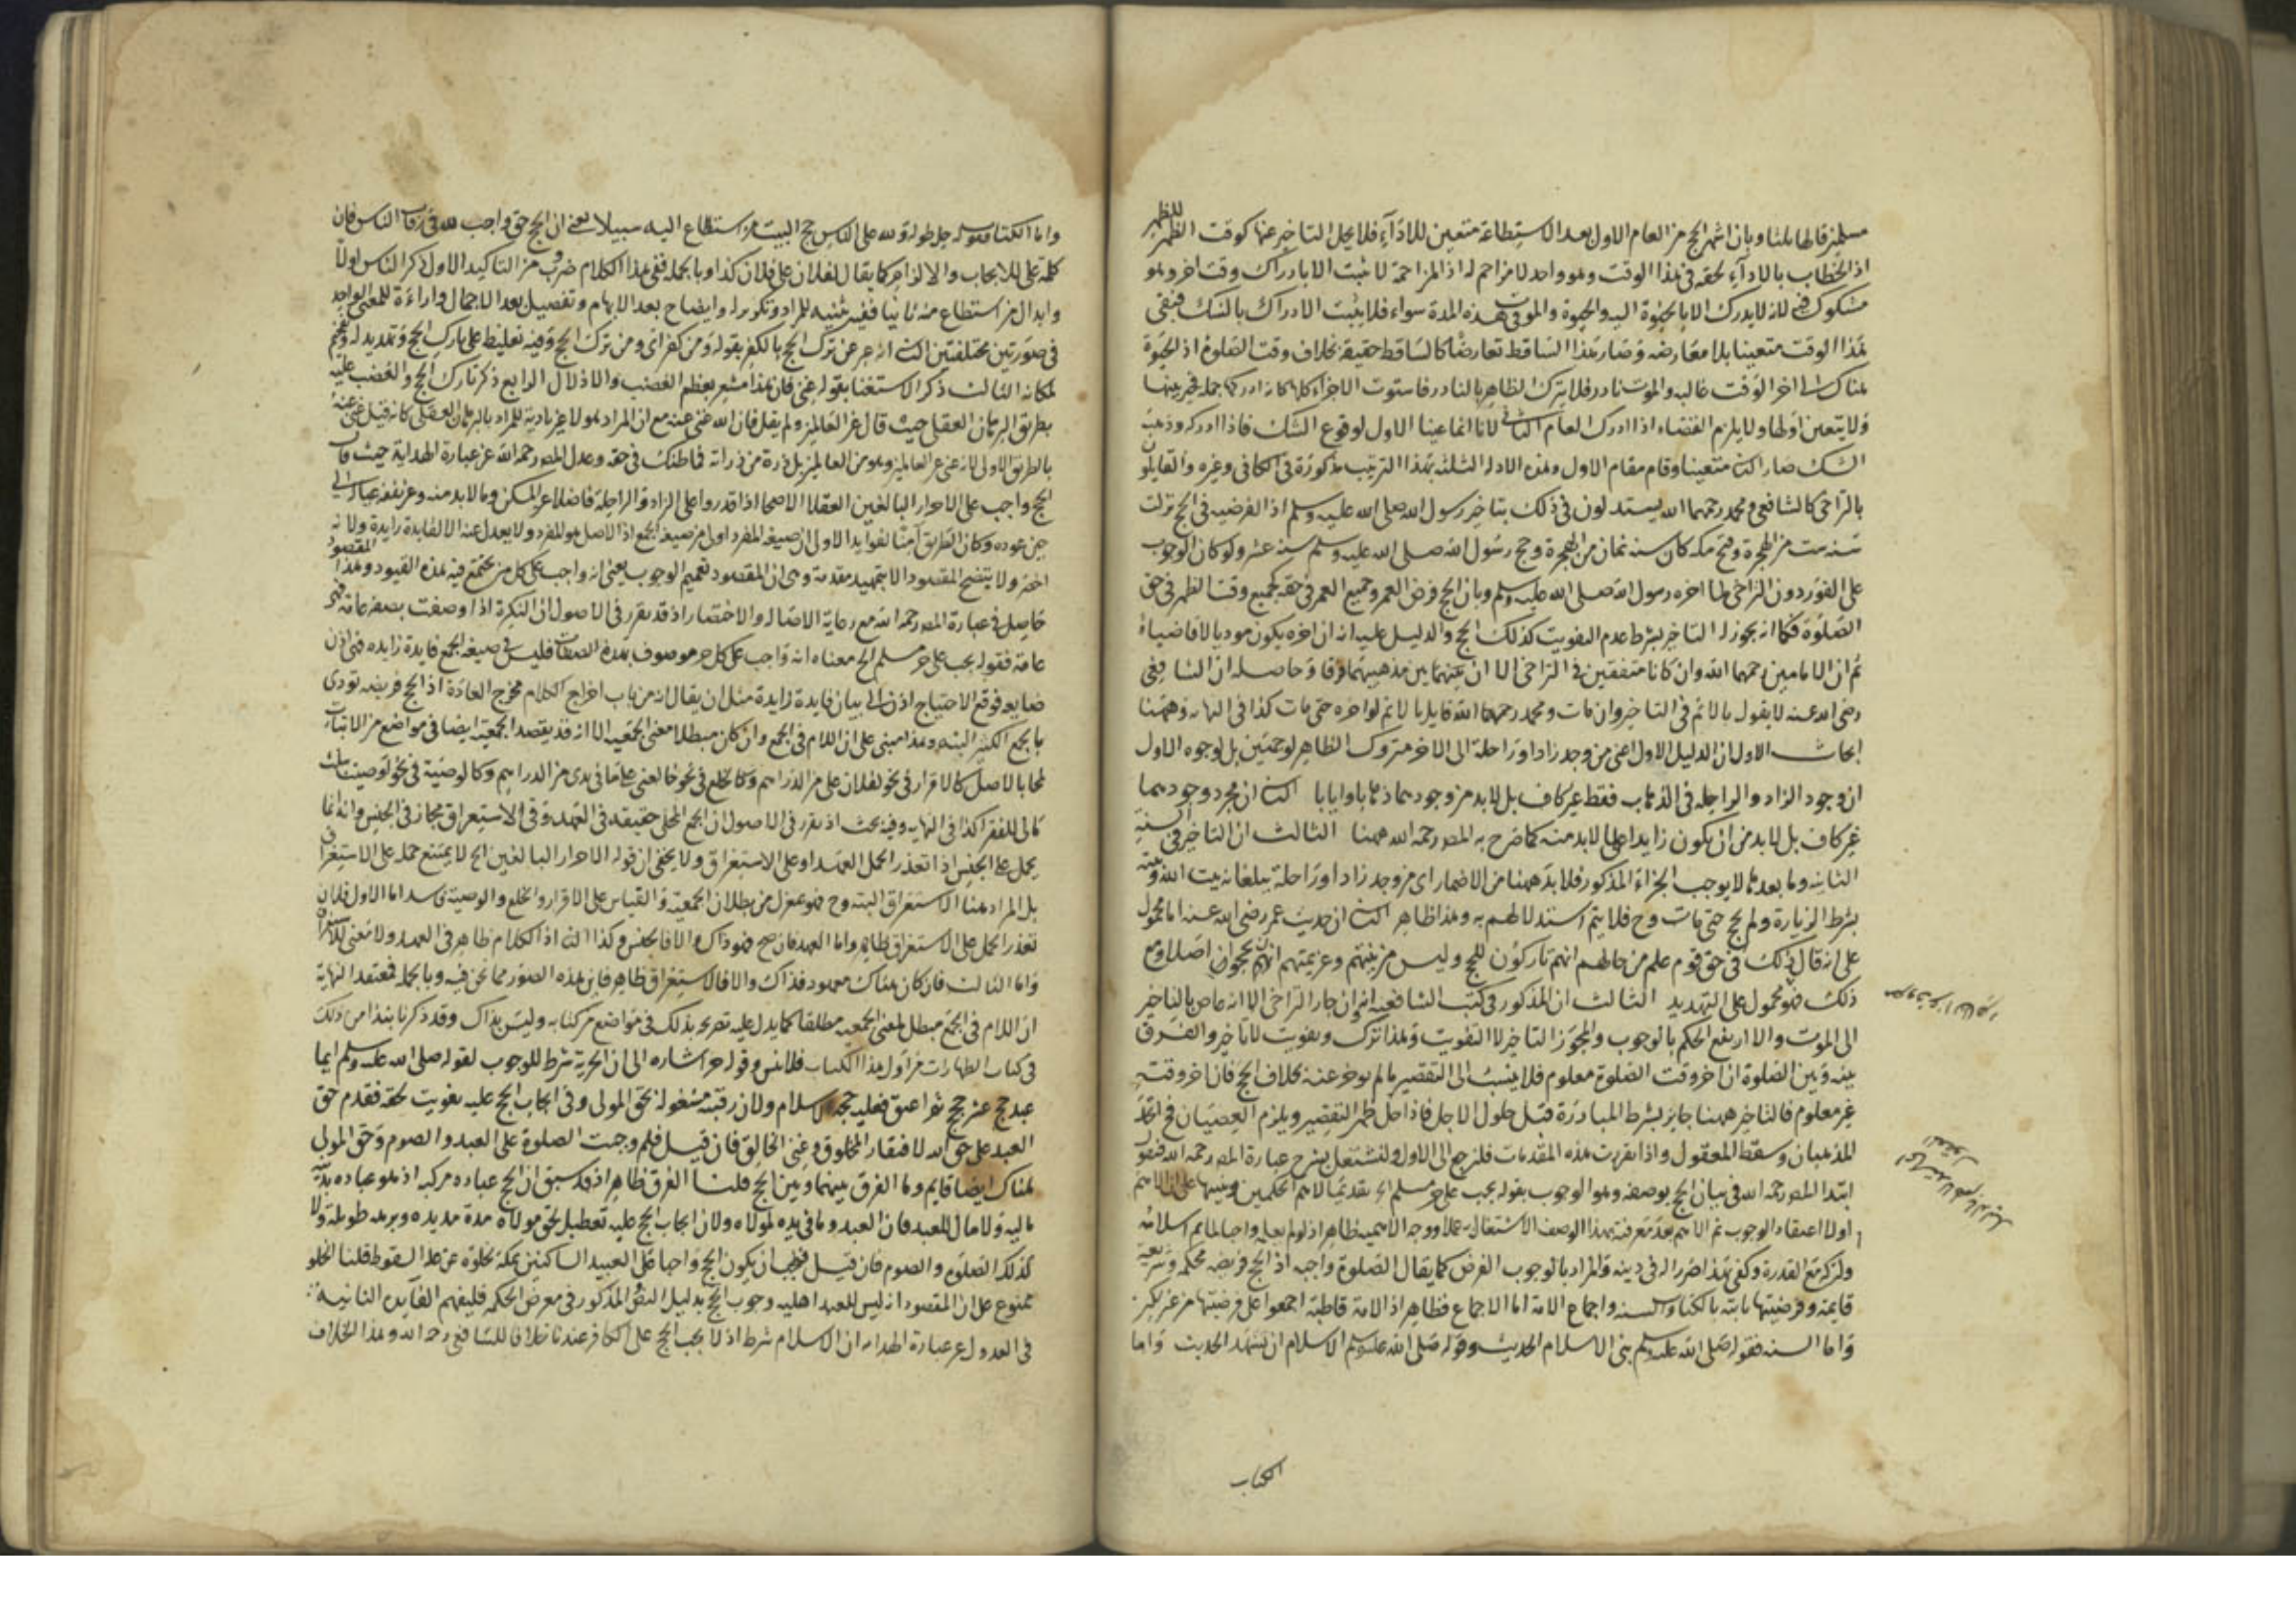 مسلمين قالها ثلثا وبان اشهر الحج من العام الاول بعد الاستطاعة متعين للادآء فلا يحل التاخير عنها كوقت الظهر للظهر
اذ الخطاب بالادآء لحقه في هذا الوقت وهو واحد لا مزاحم له اذ المزاحمة لا تثبت الا بادراك وقت اخر وهو
مشكوك فيه لانه لا يدرك الا بالحيوة اليه والحيوة والموت في هذه المدة سواء فلا يثبت الادراك بالشك فبقى
هذا الوقت متعينا بلا معارضه وصار هذا الساقط تعارضا كالساقط حقيقة بخلاف وقت الصلوة اذ الحيوة
هناك الى اخر الوقت غالبه والموت نادر فلا يترك الظاهر بالنادر فاستوت الاجزاء كلها كانه ادركها جملة فخير بينها
ولا يتعين اولها ولا يلزم القضاء اذا ادرك العام الثاني لانا انما عينا الاول لوقوع الشك فاذا ادركه وذهب
الشك صار الثاني متعينا وقام مقام الاول وهذه الادلة الثلثة بهذا الترتيب مذكورة في الكافي وغيره والقايلون
بالتراخي كالشافعي ومحمد رحمهما الله يستدلون في ذلك بتاخير رسول الله صلى الله عليه وسلم اذ الفرضيه في الحج نزلت
سنه ست من الهجرة وفتح مكه كان سنه ثمان من الهجرة وحج رسول الله صلى الله عليه وسلم سنه عشر ولو كان الوجوب
على الفور دون التراخي لما اخره رسول الله صلى الله عليه وسلم وبان الحج فرض العمر وجميع العمر في حقه كجميع وقت الظهر في حق
الصلوة فكما انه يجوز له التاخير بشرط عدم التفويت كذلك الحج والدليل عليه انه ان اخره يكون موديا لا قاضيا
ثم ان الامامين رحمهما الله وان كانا متفقين في التراخي الا ان بين مذهبيهما فرقا وحاصله ان الشافعي
رضي الله عنه لا يقول بالاثم في التاخير وان مات ومحمد رحمه الله قايل بالاثم لو اخره حتى مات كذا في النهايه وههنا
ابحاث الاول ان الدليل الاول اعني من وجد زادا وراحلة الى الاخر متروك الظاهر لوجهين بل لوجوه الاول
ان وجود الزاد والراحله في الذهاب فقط غير كاف بل لابد من وجودهما ذهابا وايابا الثاني ان مجرد وجودهما
غير كاف بل لابد من ان يكون زايدا على ما لابد منه كما صرح به المص رحمه الله ههنا الثالث ان التاخير في السنة
الثانيه وما بعدها لا يوجب الجزاء المذكور فلا بد ههنا من الاضمار اي من وجد زادا وراحلة يبلغانه بيت الله
بشرط الزيارة ولم يحج حتى مات وح فلا يتم استدلالهم به وهذا ظاهر الثاني ان حديث عمر رضي الله عنه اما محمول
على انه قال ذلك في حق قوم علم من حالهم انهم تاركون للحج وليس من نيتهم وعزيمتهم انهم يحجون اصلا ومع
ذلك فهو محمول على التهديد الثالث ان المذكور في كتب الشافعيه انه وان جاز التراخي الا انه عاص بالتاخير
الى الموت والا ارتفع الحكم بالوجوب والمجوز التاخير لا التفويت وهذا ترك وتفويت لا تاخير والفرق
بينه وبين الصلوة ان اخر وقت الصلوة معلوم فلا ينسب الى التقصير ما لم يوخر عنه بخلاف الحج فان اخر وقته
غير معلوم فالتاخير ههنا جايز بشرط المبادرة قبل حلول الاجل فاذا حل ظهر التقصير ويلزم العصيان فح اتحد
المذهبان وسقط المعقول واذا تقررت هذه المقدمات فلنرجع الى الاول ولنشتغل بشرح عبارة المص رحمه الله فنقول
ابتدا المص رحمه الله في بيان الحج بوصفه وهو الوجوب بقوله يجب على حر مسلم الخ تقديما لاهم الحكمين وتنبيها على ان الاهم
اولا اعتقاد الوجوب ثم الاهم بعد معرفته بهذا الوصف الاشتغال به عملا ووجه الاهميه ظاهر اذ لو لم يعلمه واجبا لم يتم اسلامه
ولو تركه مع القدرة وكفى بهذا ضررا له في دينه والمراد بالوجوب الفرض كما يقال الصلوة واجبه اذ الحج فريضه محكمه وشريعة
قايمه وفرضيتها ثابته بالكتاب والسنه واجماع الامة اما الاجماع فظاهر اذ الامة قاطبة اجمعوا على فرضيتها من غير نكير
واما السنه فقوله صلى الله عليه وسلم بني الاسلام الحديث وقوله صلى الله عليه وسلم الاسلام ان تشهد الحديث واما
الكتاب
واما الكتاب فقوله جل طوله ولله على الناس حج البيت من استطاع اليه سبيلا يعني ان الحج حق واجب لله في رقاب الناس فان
كلمة على للايجاب والالزام كما يقال لفلان على فلان كذا وبالجمله ففي هذا الكلام ضروب من التاكيد الاول ذكر الناس اولا
وابدال من استطاع منه ثانيا ففيه تثنيه للمراد وتكرير له وايضاح بعد الابهام وتفصيل بعد الاجمال واراءة للمعنى الواحد
في صورتين مختلفتين الثاني انه عبر عن ترك الحج بالكفر بقوله ومن كفر اي ومن ترك الحج وفيه تغليظ على تارك الحج وتهديد له
لمكانه الثالث ذكر الاستغنا بقوله غني فان هذا مشعر بعظم الغضب والاذلال الرابع ذكر تارك الحج والغضب عليه
بطريق البرهان العقلي حيث قال عن العالمين ولم يقل فان الله غني عنه مع ان المراد هو لا غير تادية للمراد بالبرهان العقلي كانه قيل غني عنه
بالطريق الاولى لانه غني عن العالمين وهو من العالمين بل ذرة من ذراته فما ظنك في حقه وعدل المص رحمه الله عن عبارة الهداية حيث قال
الحج واجب على الاحرار البالغين العقلا الاصحا اذا قدروا على الزاد والراحلة فاضلا عن المسكن وما لابد منه وعن نفقه عياله الى
حين عوده وكان الطريق آمنا لفوايد الاولى ان صيغة المفرد اولى من صيغة الجمع اذ الاصل هو المفرد ولا يعدل عنه الا لفايدة زايدة ولانه
اخصر ولا يتضح المقصود الا بتمهيد مقدمة وهي ان المقصود تعميم الوجوب يعني انه واجب على كل من يجتمع فيه هذه القيود وهذا المقصود
حاصل في عبارة المص رحمه الله مع رعاية الاصالة والاختصار اذ قد تقرر في الاصول ان النكرة اذا وصفت بصفة عامة فهي
عامة فقوله يجب على حر مسلم الخ معناه انه واجب على كل حر موصوف بهذه الصفات فليس في صيغة الجمع فايدة زايده فهي اذن
ضايعه فوقع الاحتياج اذن الى بيان فايدة زايدة مثل ان يقال انه من باب اخراج الكلام مخرج العادة اذ الحج فريضه تودى
بالجمع الكثير البته وهذا مبني على ان اللام في الجمع وان كان مبطلا معنى الجمعيه الا انه قد يقصد الجمعيه ايضا في مواضع من الاثبات
عملا بالاصل كالاقرار في نحو لفلان علي من الدراهم وكالخلع في نحو خالعني على ما في يدي من الدراهم وكالوصية في نحو اوصيت بثلث
مالي للفقرا كذا في النهايه وفيه بحث اذ تقرر في الاصول ان الجمع المحلى حقيقه في العهد وفي الاستغراق مجاز في الجنس وانه انما
يحمل على الجنس اذا تعذر الحمل على العهد او على الاستغراق ولا يخفى ان قوله الاحرار البالغين الخ لا يمتنع حمله على الاستغراق
بل المراد هنا الاستغراق البته وح فهو بمعزل من بطلان الجمعية والقياس على الاقرار والخلع والوصية فاسد اما الاول فلان
تعذر الحمل على الاستغراق ظاهر واما العهد فان صح فهو ذاك والا فالجنس وكذا الثاني اذ الكلام ظاهر في العهد ولا معنى للاستغراق
واما الثالث فان كان هناك معهود فذاك والا فالاستغراق ظاهر فاين هذه الصور مما نحن فيه وبالجمله فمعتقد النهاية
ان اللام في الجمع مبطل لمعنى الجمعيه مطلقا كما يدل عليه تصريحه بذلك في مواضع من كتابه وليس بذاك وقد ذكرنا نبذا من ذلك
في كتاب الطهارات من اول هذا الكتاب فلا تنس وقوله حر اشاره الى ان الحرية شرط للوجوب لقوله صلى الله عليه وسلم ايما
عبد حج عشر حجج ثم اعتق فعليه حجة الاسلام ولان رقبته مشغوله بحق المولى وفي ايجاب الحج عليه تفويت لحقه فقدم حق
العبد على حق الله لافتقار المخلوق وغنى الخالق فان قيل فلم وجبت الصلوة على العبد والصوم وحق المولى
هناك ايضا قايم وما الفرق بينهما وبين الحج قلنا الفرق ظاهر اذ قد سبق ان الحج عباده مركبه اذ هو عباده بدنية
ماليه ولا مال للعبد فان العبد وما في يده لمولاه ولان ايجاب الحج عليه تعطيل لحق مولاه مدة مديده وبرهه طويلة ولا
كذلك الصلوة والصوم فان قيل فيجب ان يكون الحج واجبا على العبيد الساكنين بمكة لخلوه عن علة السقوط قلنا الخلو
ممنوع على ان المقصود انه ليس للعبد اهليه وجوب الحج بدليل النص المذكور في معرض الحكم فليفهم الفايده الثانيه
في العدول عن عبارة الهدايه ان الاسلام شرط اذ لا يجب الحج على الكافر عندنا خلافا للشافعي رحمه الله وهذا الخلاف